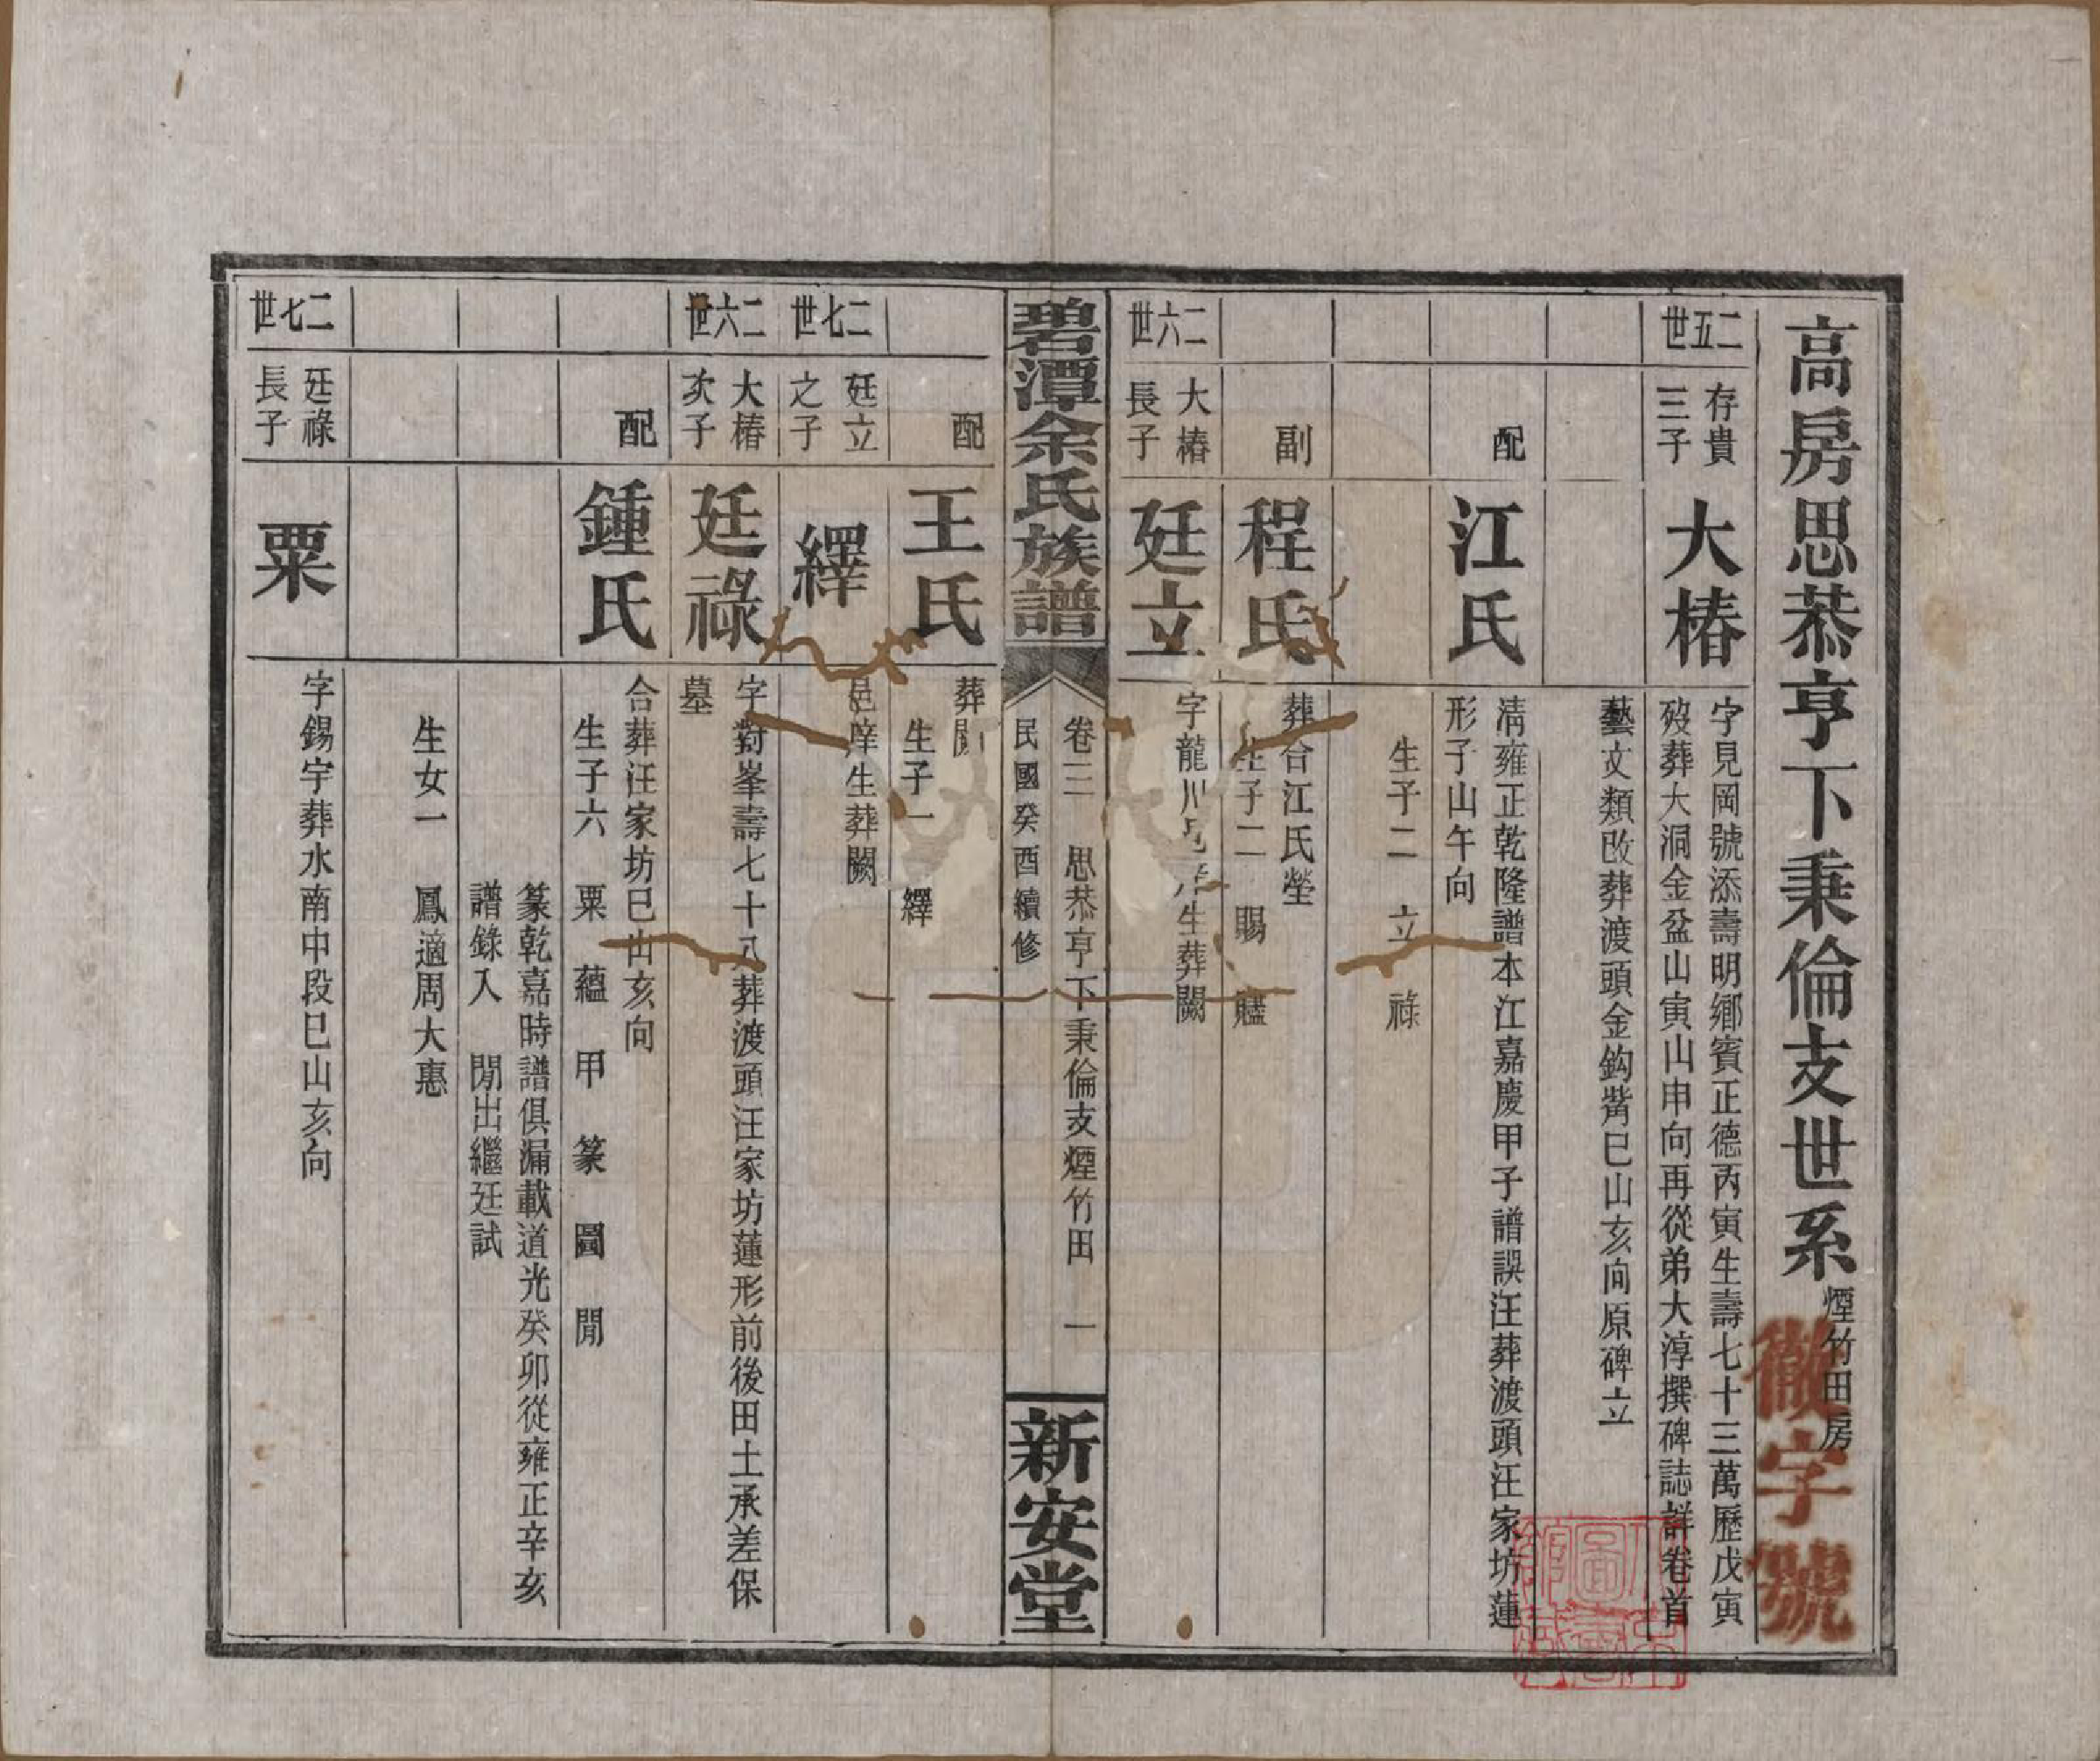 高房思恭亨下秉倫支世系 煙竹田房
徽字號
二五世
存貴三子
大椿
字見岡號添壽明鄉賓正德丙寅生壽七十三萬歷戊寅
歿葬大洞金盆山寅山申向再從弟大淳撰碑誌詳卷首
藝文類改葬渡頭金鈎觜巳山亥向原碑立
配
江氏
清雍正乾隆譜本江嘉慶甲子譜誤汪葬渡頭汪家坊蓮
形子山午向
生子二 立 祿
副
程氏
葬合江氏塋
生子二 賜  廳
二六世
大椿長子
廷立
字龍川邑庠生葬闕
碧潭余氏族譜
卷三 思恭亨下秉倫支煙竹田 一
民國癸酉續修
新安堂
配
王氏
葬闕
生子一 繹
二七世
廷立之子
繹
邑庠生葬闕
二六世
大椿次子
廷祿
字對峯壽七十八葬渡頭汪家坊蓮形前後田土承差保
墓
配
鍾氏
合葬汪家坊巳山亥向
生子六 粟 蘊 甲 篆 圖 閒
篆乾嘉時譜俱漏載道光癸卯從雍正辛亥
譜錄入 閒出繼廷試
生女一 鳳適周大惠
二七世
廷祿長子
粟
字錫宇葬水南中段巳山亥向